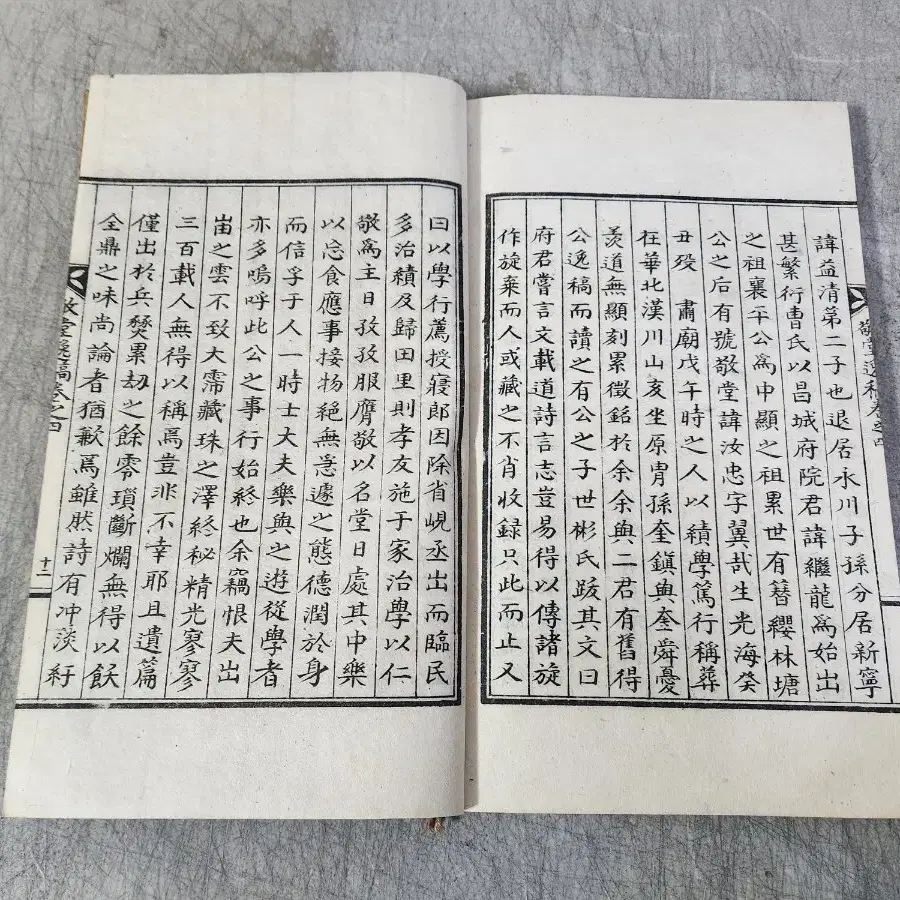 諱益清第二子也退居永川子孫分居新寧
甚繁衍曹氏以昌城府院君諱繼龍爲始出
之祖襄平公爲中顯之祖累世有簪纓林塘
公之后有號敬堂諱汝忠字翼哉生光海癸
丑歿 肅廟戊午時之人以績學篤行稱葬
在華北漢川山亥坐原胄孫奎鎭與奎舜憂
羨道無顯刻累徵銘於余余與二君有舊得
公逸稿而讀之有公之子世彬氏跋其文曰
府君嘗言文載道詩言志豈易得以傳諸旋
作旋棄而人或藏之不肖收録只此而止又
敬堂逸稿卷之四
曰以學行薦授寢郎因除省峴丞出而臨民
多治績及歸田里則孝友施于家治學以仁
敬爲主日孜孜服膺敬以名堂日處其中樂
以忘食應事接物絕無怠遽之態德潤於身
而信孚于人一時士大夫樂與之遊從學者
亦多嗚呼此公之事行始終也余竊恨夫出
宙之雲不致大霈藏珠之澤終秘精光寥寥
三百載人無得以稱焉豈非不幸耶且遺篇
僅出於兵燹累劫之餘零瑣斷爛無得以飫
全鼎之味尚論者猶歉焉雖然詩有冲淡紆
敬堂逸稿卷之四
十二